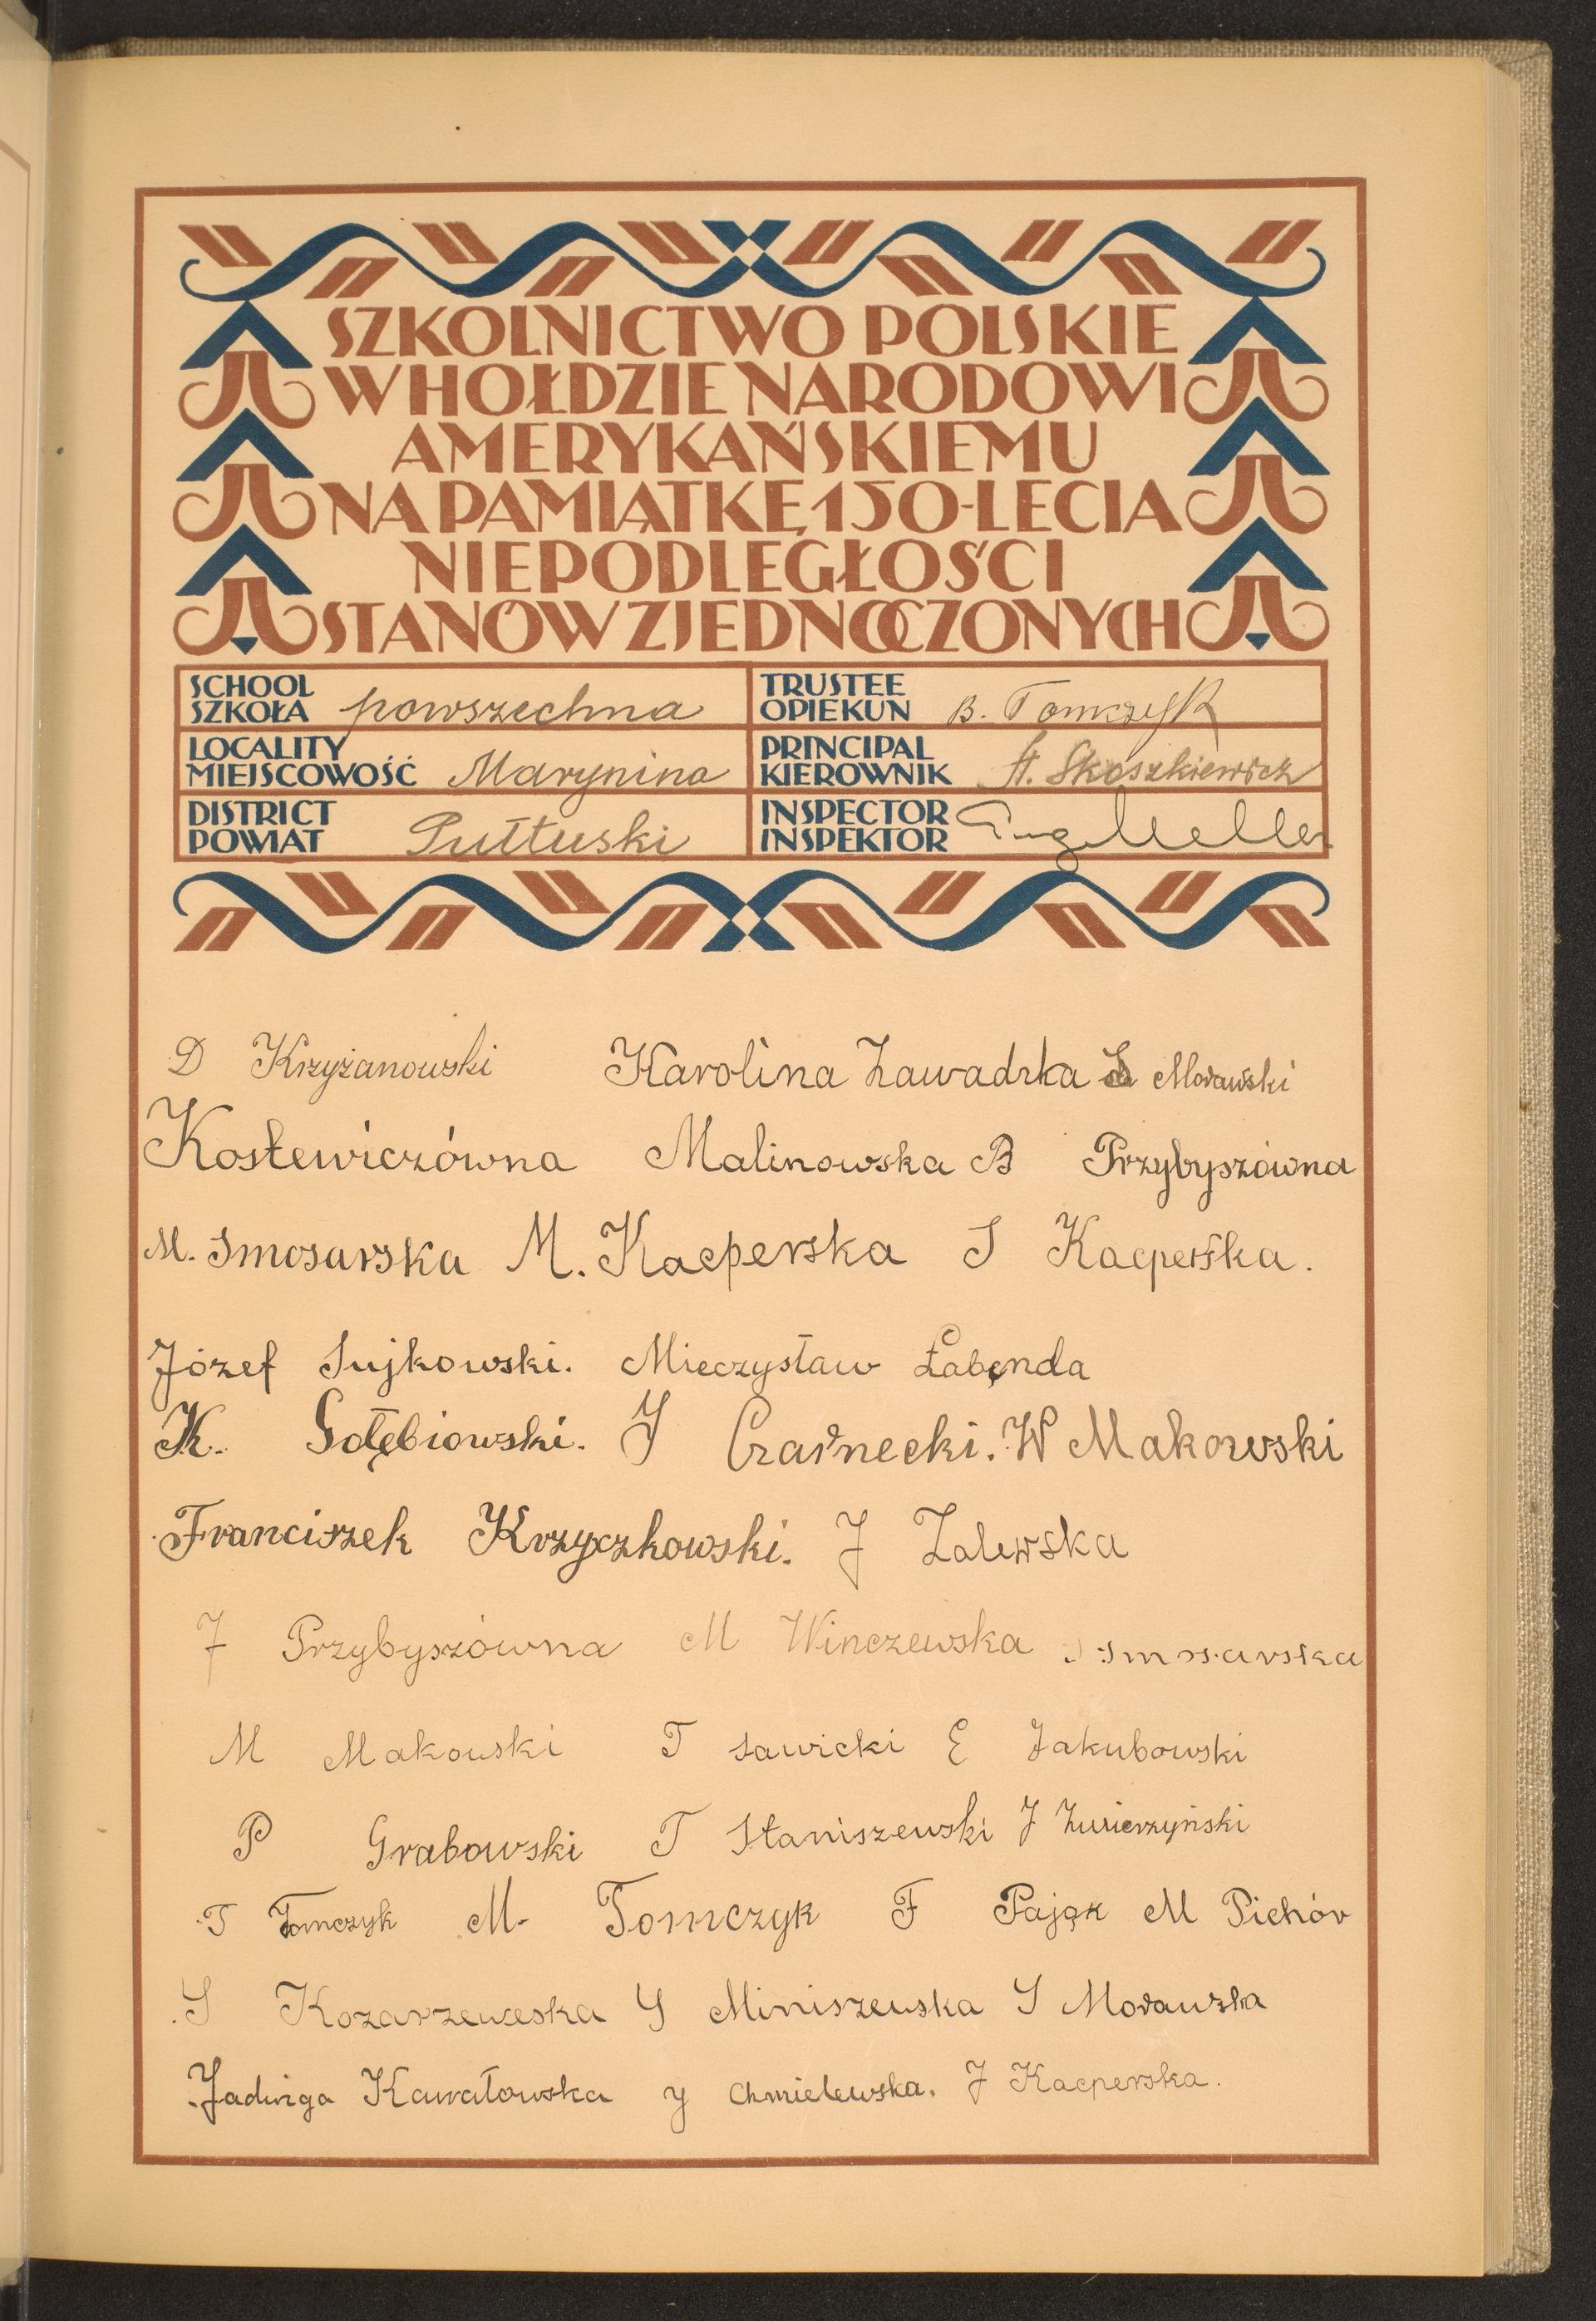 SZKOLNICTWO POLSKIE
W HOŁDZIE NARODOWI
AMERYKAŃSKIEMU
NA PAMIĄTKĘ 150-LECIA
NIEPODLEGŁOŚCI
STANÓW ZJEDNOCZONYCH
SCHOOL
SZKOŁA powszechna
TRUSTEE
OPIEKUN B. Tomczyk
LOCALITY
MIEJSCOWOŚĆ Marynino
PRINCIPAL
KIEROWNIK St. Skoszkiewicz
DISTRICT
POWIAT Pułtuski
INSPECTOR
INSPEKTOR
D Krzyżanowski Karolina Zawadzka S Morawski
Kostewiczówna Malinowska B Przybyszówna
M. Smosarska M. Kacperska S Kacperska.
Józef Sujkowski. Mieczysław Łabęnda
K. Gołębiowski. J Czarnecki. W Makowski
Franciszek Krzyczkowski. J Zalewska
J Przybyszówna M Winczewska J Smosarska
M Makowski T Sawicki E Jakubowski
P Grabowski T Staniszewski J Zwierzyński
T Tomczyk M. Tomczyk F Pająk M Pichór
S Kozarzeweska S Miniszewska S Morawska
Jadwiga Kawałowska J Chmielewska. J Kacperska.